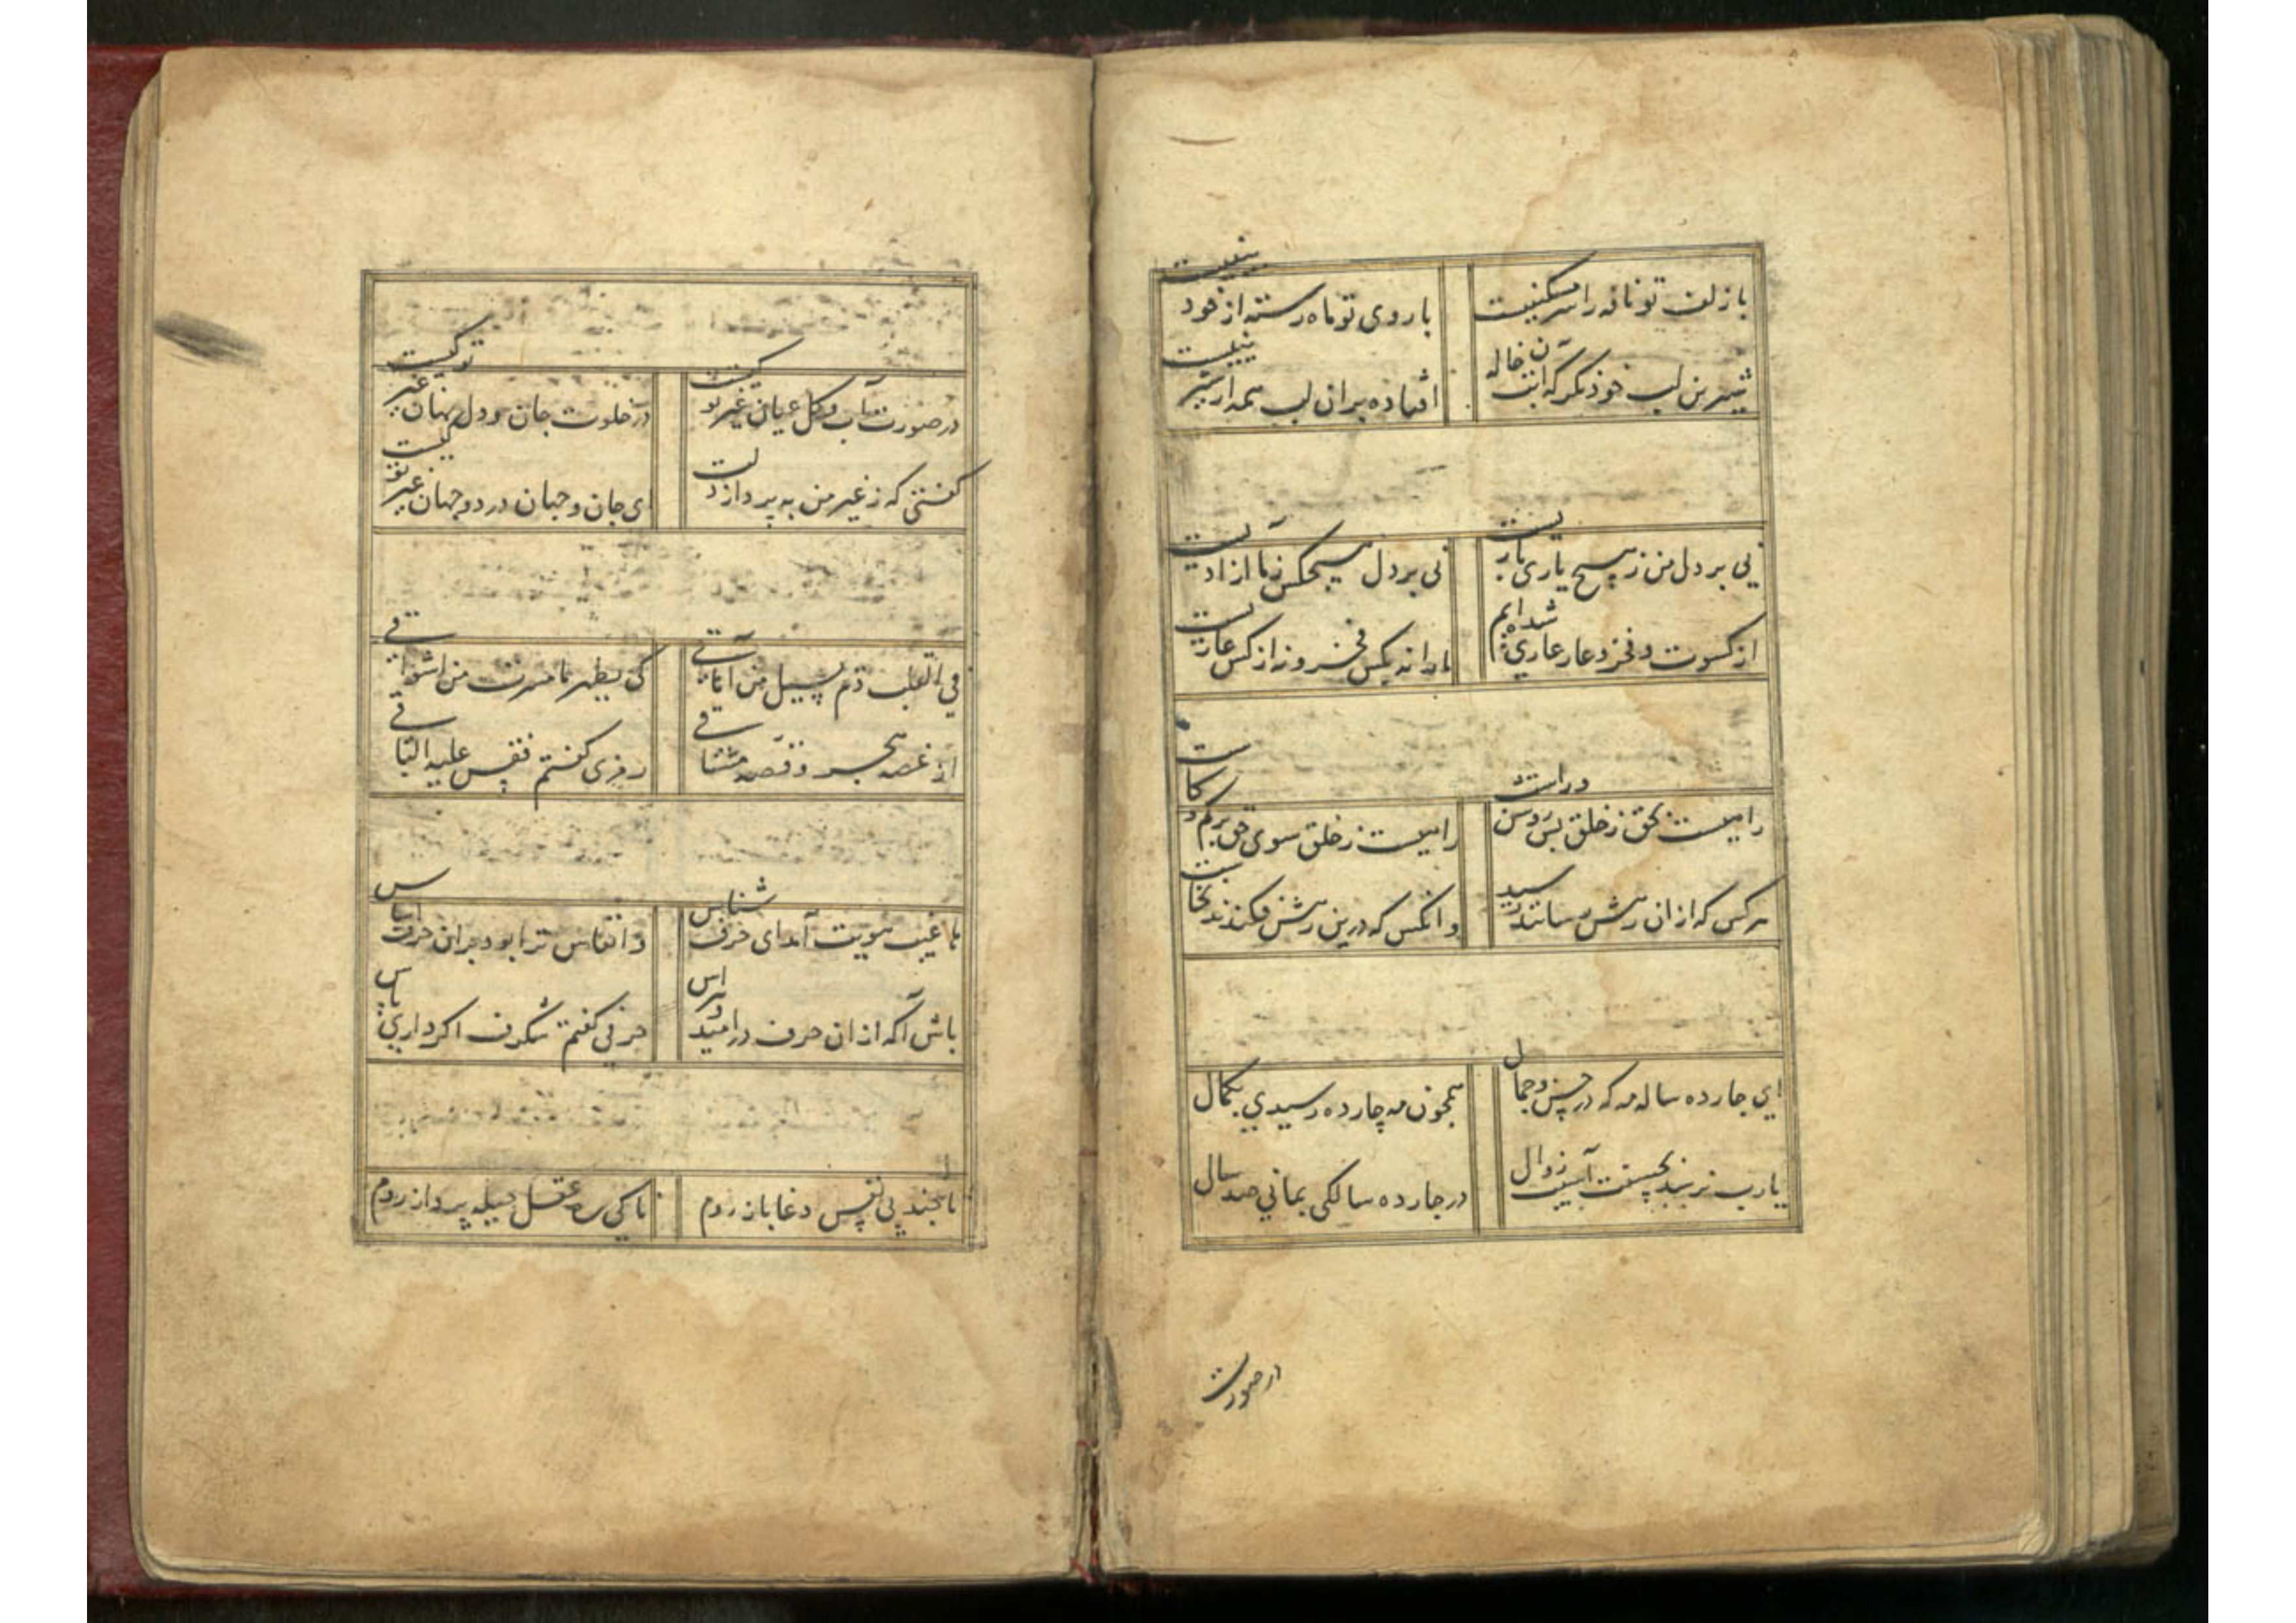 با زلف تو نافه را سر مسکینیست با روی تو ماه رسته از خود بینیست
شیرین لب خود نکر که آن تبخاله افتاده بران لب همه از شیرینیست
نی بر دل من ز هیچ یاری باریست نی بر دل هیچکس ز ما آزاریست
از کسوت و فخر و عار عاری شده‌ایم ما را نه بکس فخر و نه از کس عاریست
راهیست ز حق ز خلق بس روشن و راست راهیست ز خلق سوی حق بی کم و کاست
هر کس که ازان رهش رسانند رسید وانکس که درین رهش فکندند نخاست
ای چارده ساله مه که در حسن و جمال همچون مه چارده رسیدی بکمال
یارب نرسد بحسنت آسیب زوال در چارده سالکی بمانی صد سال
در صورت
در صورت آب و کل عیان غیر تو کیست در خلوت جان و دل نهان غیر تو کیست
کفتی که ز غیر من به پرداز دلت ای جان و جهان در دو جهان غیر تو کیست
في القلب دم يسيل من آماقي كي يظهر ما سترت من اشواقي
از غصه هجر و قصه مشتاقی رمزی کفتم فقس علیه الباقی
ها غیب هویت آمد ای حرف شناس وانفاس ترا بود بران حرف اساس
باش آکه ازان حرف در امید و هراس حرفی کفتم شکرف اکر داری پاس
تا چند پی نفس دغا باز روم تا کی ره عقل حیله پرداز روم